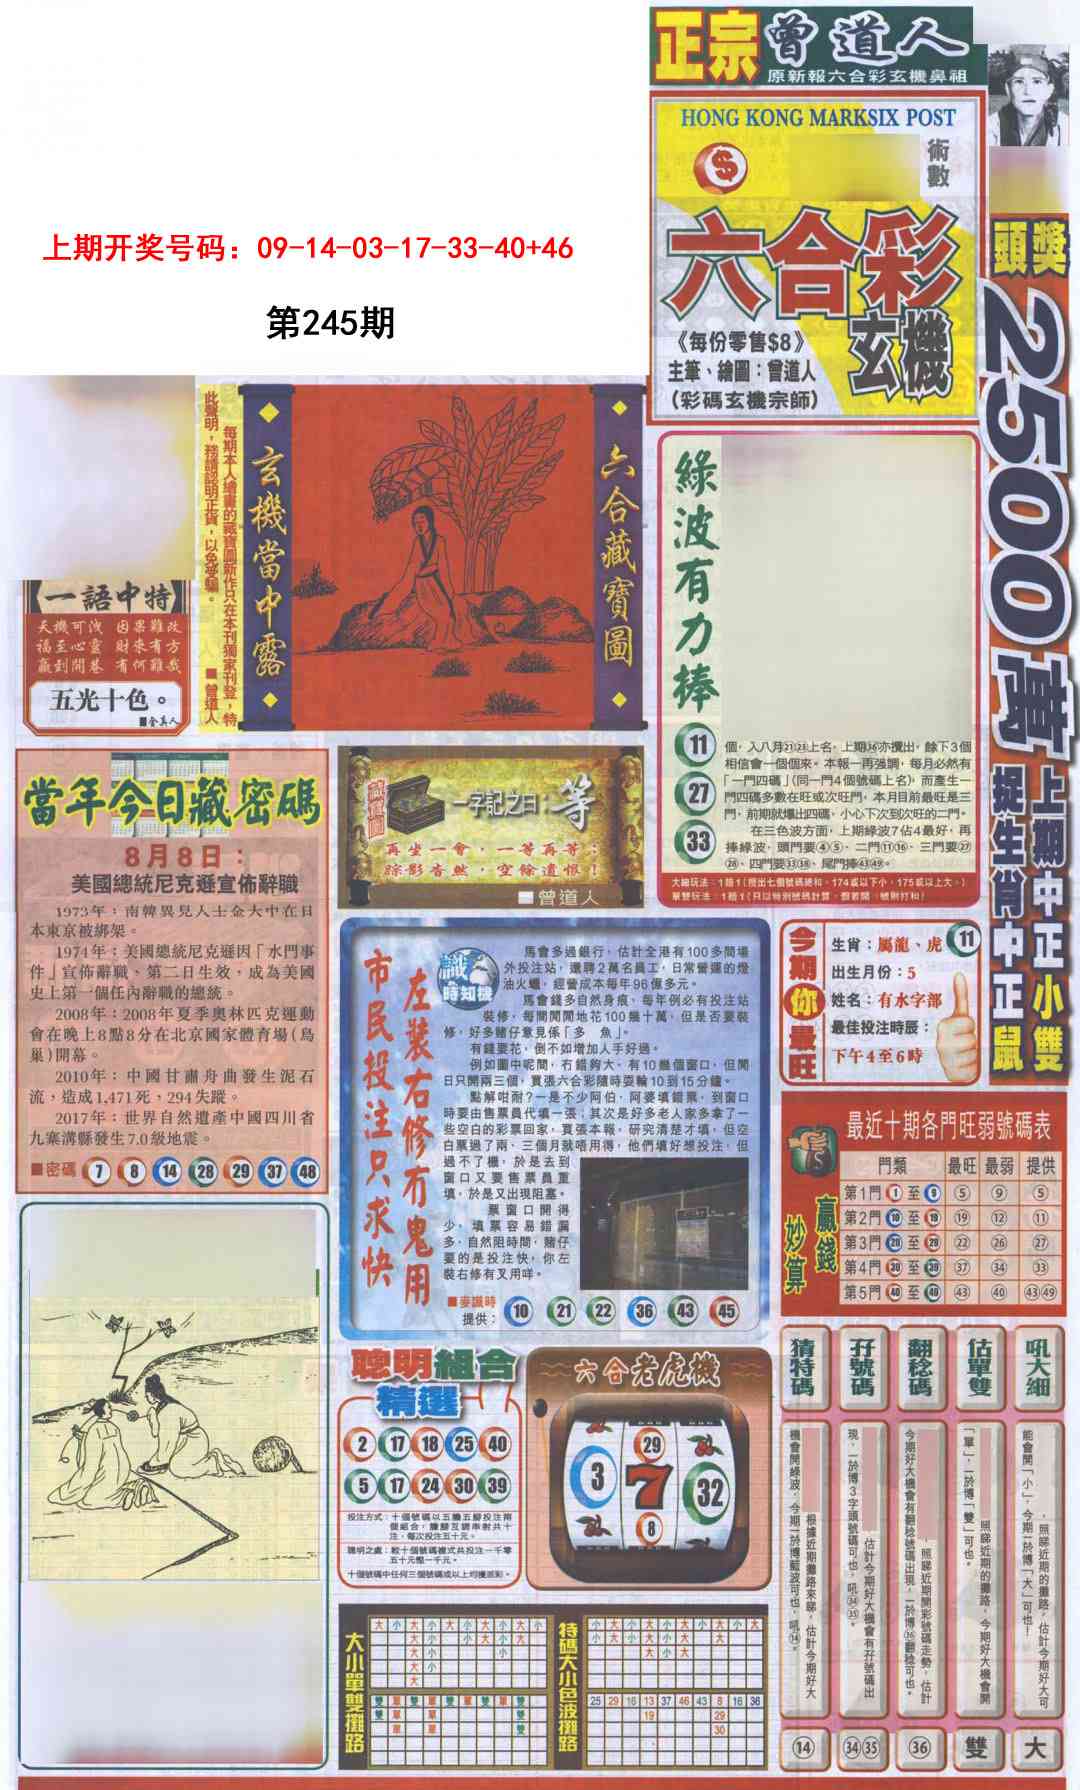 正宗曾道人
原新報六合彩玄機鼻祖
HONG KONG MARKSIX POST
術數
六合彩
玄機
《每份零售$8》
主筆、繪圖：曾道人
（彩碼玄機宗師）
上期开奖号码：09-14-03-17-33-40+46
第245期
頭獎
2500萬
上期中正小雙
捉生肖中正鼠
一語中特
天機可洩 因果難改
福至心靈 財來有方
贏到開巷 有何難哉
五光十色。
■金真人
每期本人繪畫的藏寶圖新作只在本刊獨家刊登，特
此聲明，務請認明正貨，以免受騙。
■曾道人
玄機當中露
六合藏寶圖
綠波有力捧
11
27
33
個，入八月㉑㉓上名，上期㊱亦攪出，餘下3個
相信會一個個來。本報一再強調，每月必然有
「一門四碼」(同一門4個號碼上名)，而產生一
門四碼多數在旺或次旺門，本月目前最旺是三
門，前期就爆出四碼，小心下次到次旺的二門。
在三色波方面，上期綠波7佔4最好，再
捧綠波，頭門要④⑤、二門⑪⑯、三門要㉗
㉘、四門要㉝㊳、尾門捧㊸㊾。
大細玩法：1賠1(攪出七個號碼總和，174或以下小，175或以上大。)
當年今日藏密碼
8月8日：
美國總統尼克遜宣佈辭職
1973年：南韓異見人士金大中在日
本東京被綁架。
1974年：美國總統尼克遜因「水門事
件」宣佈辭職、第二日生效，成為美國
史上第一個任內辭職的總統。
2008年：2008年夏季奧林匹克運動
會在晚上8點8分在北京國家體育場(鳥
巢)開幕。
2010年：中國甘肅舟曲發生泥石
流，造成1,471死，294失蹤。
2017年：世界自然遺產中國四川省
九寨溝縣發生7.0級地震。
■密碼 7 8 14 28 29 37 48
一字記之曰：等
再坐一會，一等再等；
綜影杳然，空餘遺恨！
■曾道人
識時知機
左裝右修冇鬼用
市民投注只求快
馬會多過銀行，估計全港有100多間場
外投注站，還聘2萬名員工，日常營運的燈
油火蠟，經營成本每年96億多元。
馬會錢多自然身痕，每年例必有投注站
裝修，每間閒閒地花100幾十萬，但是否要裝
修，好多賭仔意見係「多 魚」。
有錢要花，倒不如增加人手好過。
例如圖中呢間，冇錯夠大，有10幾個窗口，但閒
日只開兩三個，買張六合彩隨時耍輪10到15分鐘。
點解咁耐？一是不少阿伯、阿婆填錯票，到窗口
時要由售票員代填一張；其次是好多老人家多拿了一
些空白的彩票回家，買張本報，研究清楚才填，但空
白票過了兩、三個月就唔用得，他們填好想投注，但
過不了機，於是去到
窗口又要售票員重
填，於是又出現阻塞。
票窗口開得
少，填票容易錯漏
多，自然阻時間，賭仔
要的是投注快，你左
裝右修有叉用咩。
■麥識時
提供： 10 21 22 36 43 45
今期你最旺
生肖：屬龍、虎 11
出生月份：5
姓名：有水字部
最佳投注時辰：
下午4至6時
最近十期各門旺弱號碼表
贏錢妙算
門類 最旺 最弱 提供
第1門 1 至 9 ⑤ ⑨ ⑤
第2門 10 至 19 ⑲ ⑫ ⑪
第3門 20 至 29 ㉒ ㉖ ㉗
第4門 30 至 39 ㊲ ㉞ ㉝
第5門 40 至 49 ㊸ ㊵ ㊸㊾
聰明組合
精選
2 17 18 25 40
5 17 24 30 39
投注方式：十個號碼以五膽五腳投注兩
個組合，膽腳互調串射共十
注，每次投注五十元。
聰明之處：較十個號碼複式共投注一千零
五十元慳一千元。
十個號碼中任何三個號碼或以上均獲派彩。
六合老虎機
3 29 7 8 32
猜特碼
孖號碼
翻稔碼
估單雙
吼大細
根據近期攤路來睇，估計今期好大
機會開綠波，今期一於博藍波可也，吼⑭。
估計今期好大機會有孖號碼出
現，一於博3字頭號碼可也，吼㉞㉟。
照睇近期開彩號碼走勢，估計
今期好大機會有翻稔號碼出現，一於博㊱翻稔可也。
照睇近期的攤路，今期好大機會開
「單」，一於博「雙」可也。
照睇近期的攤路，估計今期好大可
能會開「小」，今期一於博「大」可也！
⑭
㉞㉟
㊱
雙
大
大小單雙攤路
大 小 大 小 小 大 小 大 小
大 小 小 大 小 小
大 小
大
雙 單 雙 單 雙 單 雙 單 雙
雙 單 單 雙
單 單 雙
特碼大小色波攤路
小 大 小 小 大 大 大 小 小 大
小 大 小 大 大
大 小 大
25 29 16 13 37 46 43 8 16 36
19 29
30